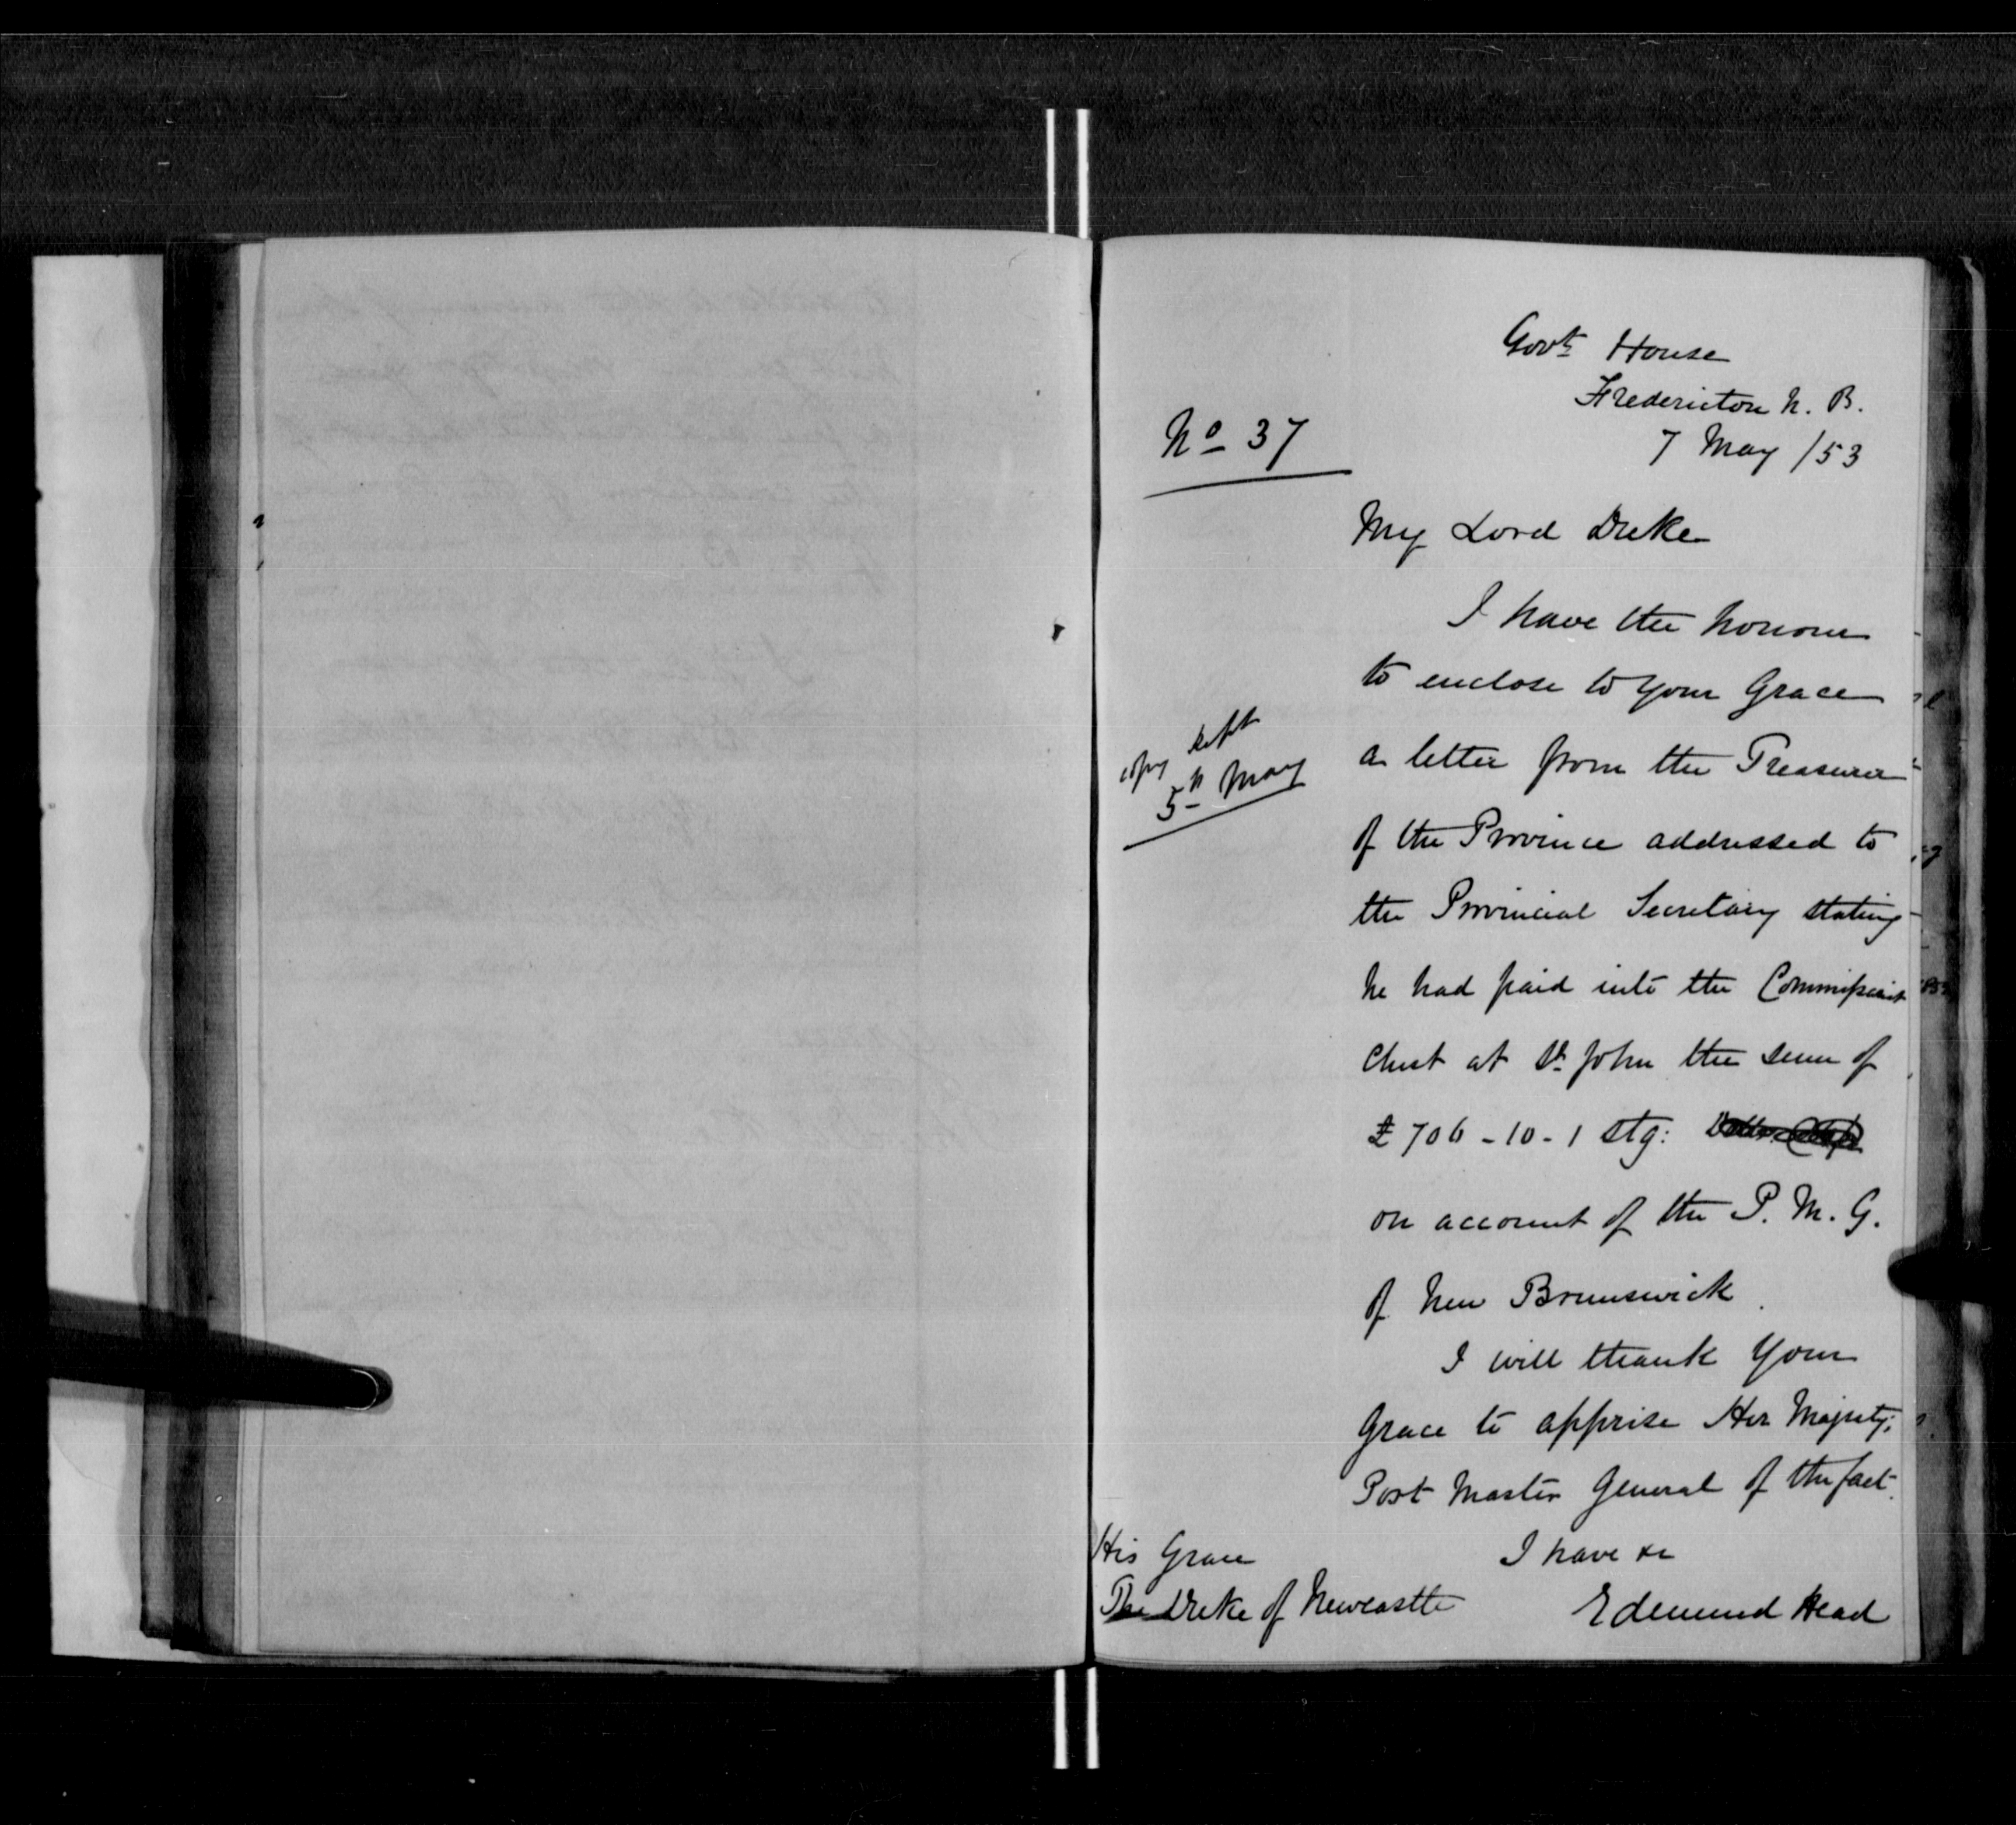 Govt House
Fredericton N. B.
7 May /53
No 37
My Lord Duke
I have the honour
to enclose to Your Grace
a letter from the Treasurer
of the Province addressed to
the Provincial Secretary stating
he had paid into the Commissariat
Chest at St John the sum of
£ 706 - 10 - 1 stg:
on account of the P. M. G.
of New Brunswick.
I will thank Your
Grace to apprise Her Majesty's
Post Master General of the fact.
I have &c
Edmund Head
His Grace
The Duke of Newcastle
copy kept
5th May